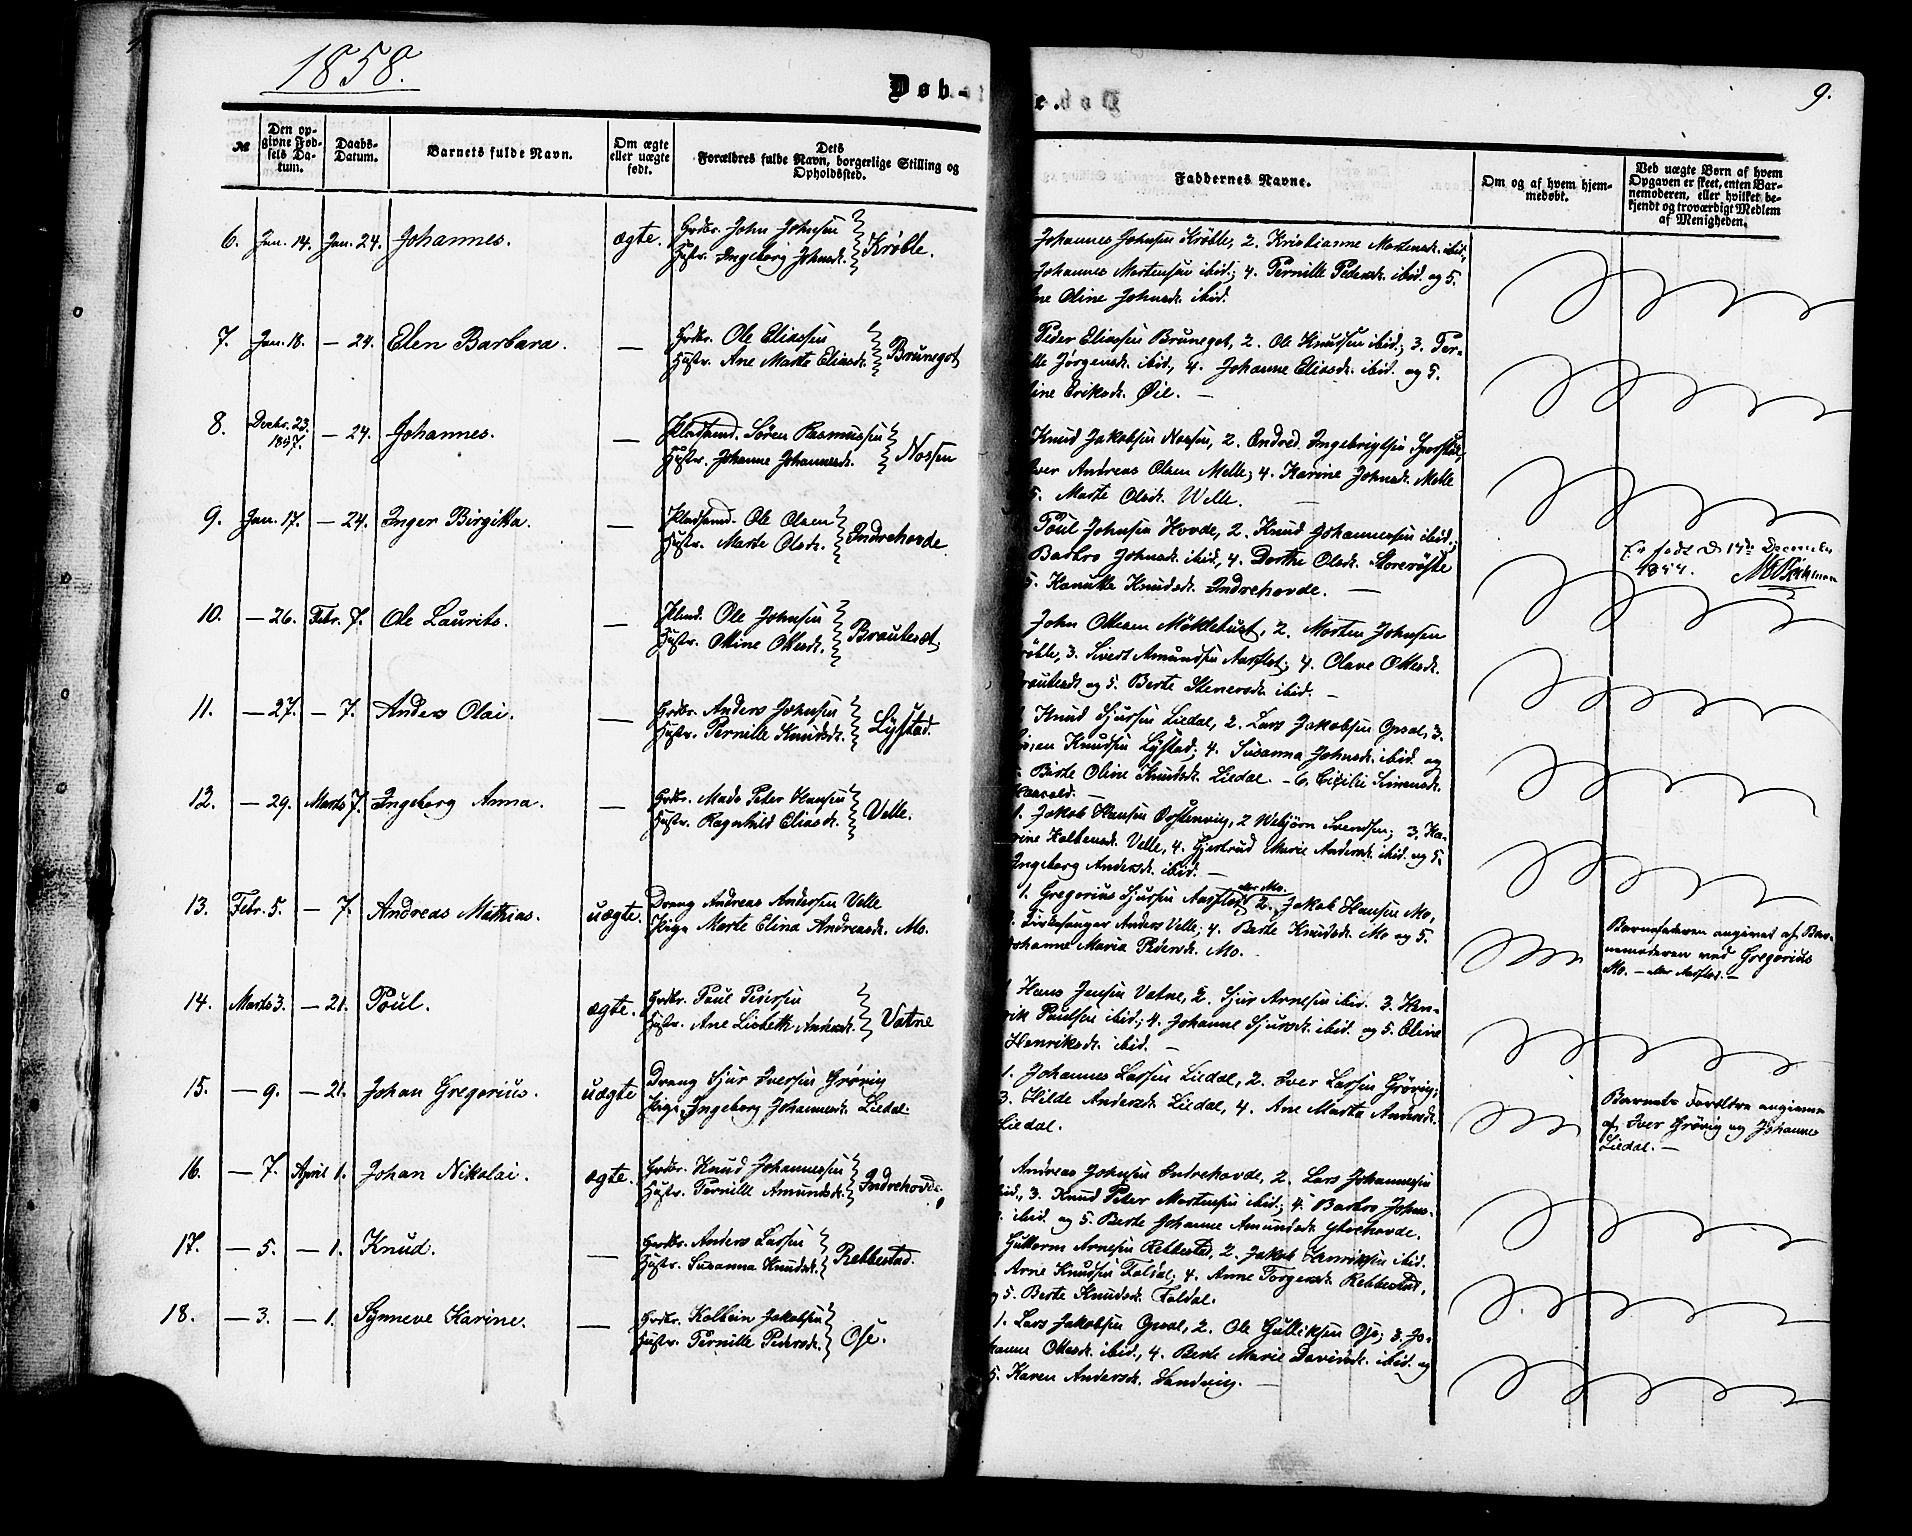 1858.
Døb-
e.
9.
№
Den op-
givne Fød-
sels Da-
tum.
Daabs-
Datum.
Barnets fulde Navn.
Om ægte
eller uægte
født.
Dets
Forældres fulde Navn, borgerlige Stilling og
Opholdssted.
Faddernes Navne.
Om og af hvem hjem-
medøbt.
Ved uægte Børn af hvem
Opgaven er skeet, enten Bar-
nemoderen, eller hvilket be-
kjendt og troværdigt Medlem
af Menigheden.
6. Jan. 14. Jan. 24. Johannes. ægte. Grdbr. John Johnsen
Hustr. Ingeborg Johnsdt. Krøble.
Johannes Johnsen Krøble, 2. Kristianne Mortensdt. ibid.,
Johannes Mortensen ibid; 4. Pernille Pedersdt. ibid. og 5.
Oline Johnsdt. ibid.
7. Jan. 18. — 24. Elen Barbara. — Grdbr. Ole Eliassen
Hustr. Ane Marte Eliasdt. Brunegot
Peder Eliassen Brunegot, 2. Ole Knudsen ibid; 3. Per-
lle Jørgensdt. ibid., 4. Johanne Eliasdt. ibid. og 5.
ine Eriksdt. Øie. —
8. Decbr. 23.
1857. — 24. Johannes. — Pladsmd. Søren Rasmussen
Hustr. Johanne Johannesdt. Nossen
Knud Jakobsen Nossen, 2. Endred Ingebrigtsen
Andreas Olsen Melle; 4. Karine Johnsdt. Melle
5. Marte Olsdt. Welle. —
9. Jan. 17. — 24. Inger Birgitta. — Pladsmd. Ole Olsen
Hustr. Marte Olsdt. Indrehovde
Poul Johnsen Hovde, 2. Knud Johannessen ibid.;
Barbro Johnsdt. ibid., 4. Dorthe Olsdt. Storerøste
5. Knudsdt. Indrehovde. —
Er født d 17de December
10. — 26. Febr. 7. Ole Laurits. — Plmd. Ole Johnsen
Hustr. Ottine Ottesdt. Brautesæt
John Ottesen Møklebust, 2. Morten Johnsen
røble, 3. Sivert Amundsen Aarflot; 4. Olave Ottesdt.
rautesæt og 5. Berte Stenersdt. ibid. —
11. — 27. — 7. Anders Olai. — Grdbr. Anders Johnsen
Hustr. Pernille Knudsdt. Lystad.
Knud Sjursen Liedal, 2. Lars Jakobsen Opsal, 3.
en Knudsen Lystad; 4. Susanna Johnsdt. ibid. og
Birte Oline Knudsdt. Liedal. — 6. Cicilie Simensdt.
12. — 29. Marts 7. Ingeborg Anna. — Grdbr. Mads Peter Hansen
Hustr. Ragnhild Eliasdt. Velle.
1. Jakob Hansen Østenvig, 2 Webjørn Svendsen; 3. Ka-
rine Kolbensdt. Velle, 4. Gjertrud Marie Andersdt. ibid. og 5.
Ingeborg Andersdt. ibid. —
13. Febr. 5. — 7. Andreas Mathias. uægte. Dreng Andreas Andersen Velle
Pige Marte Elina Andreasdt. Mo.
eller Mo.
1. Gregorius Sjursen Aarflot 2. Jakob Hansen Mo,
Kirkesanger Anders Velle; 4. Berte Knudsdt. Mo og 5.
Johanne Maria Pedersdt. Mo.
Barnefaderen angivet af Bar-
nemoderen ved Gregorius
Mo. — eller Aarflot —
14. Marts 3. — 21. Poul. ægte. Grdbr. Poul Pedersen
Hustr. Ane Lisbeth Andersdt. Vatne
Hans Jensen Vatne, 2. Sjur Arnesen ibid. 3. Hen-
rik Paulsen ibid; 4. Johanne Sjursdt. ibid. og 5. Oline
Henriksdt. ibid. —
15. — 9. — 21. Johan Gregorius. uægte Dreng Sjur Iversen Grøvig
Pige Ingeborg Johannesdt. Liedal.
1. Johannes Larsen Liedal, 2. Iver Larsen Grøvig;
3. Hilde Andersdt. Liedal, 4. Ane Marta Andersdt.
Liedal.
Barnets Forældre angivne
af Iver Grøvig og Johannes
Liedal. —
16. — 7. April 1. Johan Nikolai. ægte. Grdbr. Knud Johannessen
Hustr. Pernille Amundsdt. Indrehovde
Andreas Johnsen Indrehovde, 2. Lars Johannesen
ibid., 3. Knud Peter Mortensen ibid; 4. Barbro Johns-
ibid. og 5. Berte Johanne Amundsdt. Ytrehovde.
17. — 5. — 1. Knud. — Grdbr. Anders Larsen
Hustr. Susanna Knudsdt. Rebbestad.
Guttorm Arnesen Rebbestad, 2. Jakob Henriksen ibid.
Arne Knudsen Foldal; 4. Anne Torgersdt. Rebbestad,
og 5. Berte Knudsdt. Foldal.
18. — 3. — 1. Synneve Karine. — Grdbr. Kolbein Jakobsen
Hustr. Pernille Pedersdt. Ose.
1. Lars Jakobsen Opsal, 2. Ole Gulliksen Ose; 3. Jo-
hanne Ottesdt. ibid., 4. Berte Marie Davidsdt. ibid. og
5. Karen Andersdt. Sandvig. —